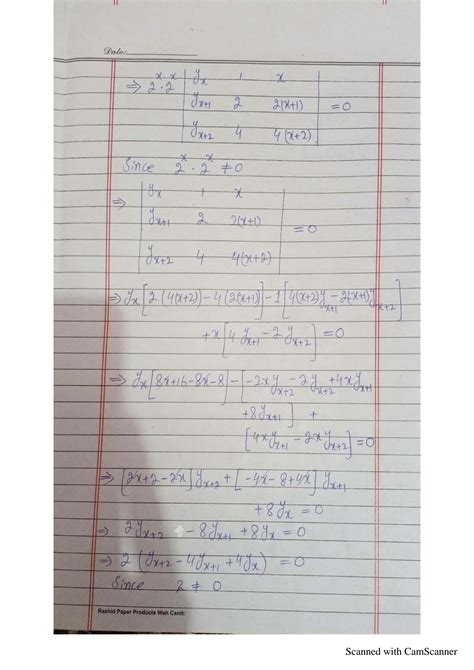 Date:
⇒ 2^x · 2^x | y_x 1 x |
| y_{x+1} 2 2(x+1) | = 0
| y_{x+2} 4 4(x+2) |
Since 2^x · 2^x ≠ 0
⇒ | y_x 1 x |
| y_{x+1} 2 2(x+1) | = 0
| y_{x+2} 4 4(x+2) |
⇒ y_x [2(4(x+2)) - 4(2(x+1))] - 1[4(x+2)y_{x+1} - 2(x+1)y_{x+2}]
+ x[4y_{x+1} - 2y_{x+2}] = 0
⇒ y_x [8x+16-8x-8] - [-2xy_{x+2} - 2y_{x+2} + 4xy_{x+1}
+ 8y_{x+1}] +
[4xy_{x+1} - 2xy_{x+2}] = 0
⇒ [2x+2-2x] y_{x+2} + [-4x-8+4x] y_{x+1}
+ 8y_x = 0
⇒ 2y_{x+2} - 8y_{x+1} + 8y_x = 0
⇒ 2(y_{x+2} - 4y_{x+1} + 4y_x) = 0
Since 2 ≠ 0
Rashid Paper Products Wah Cantt:
Scanned with CamScanner